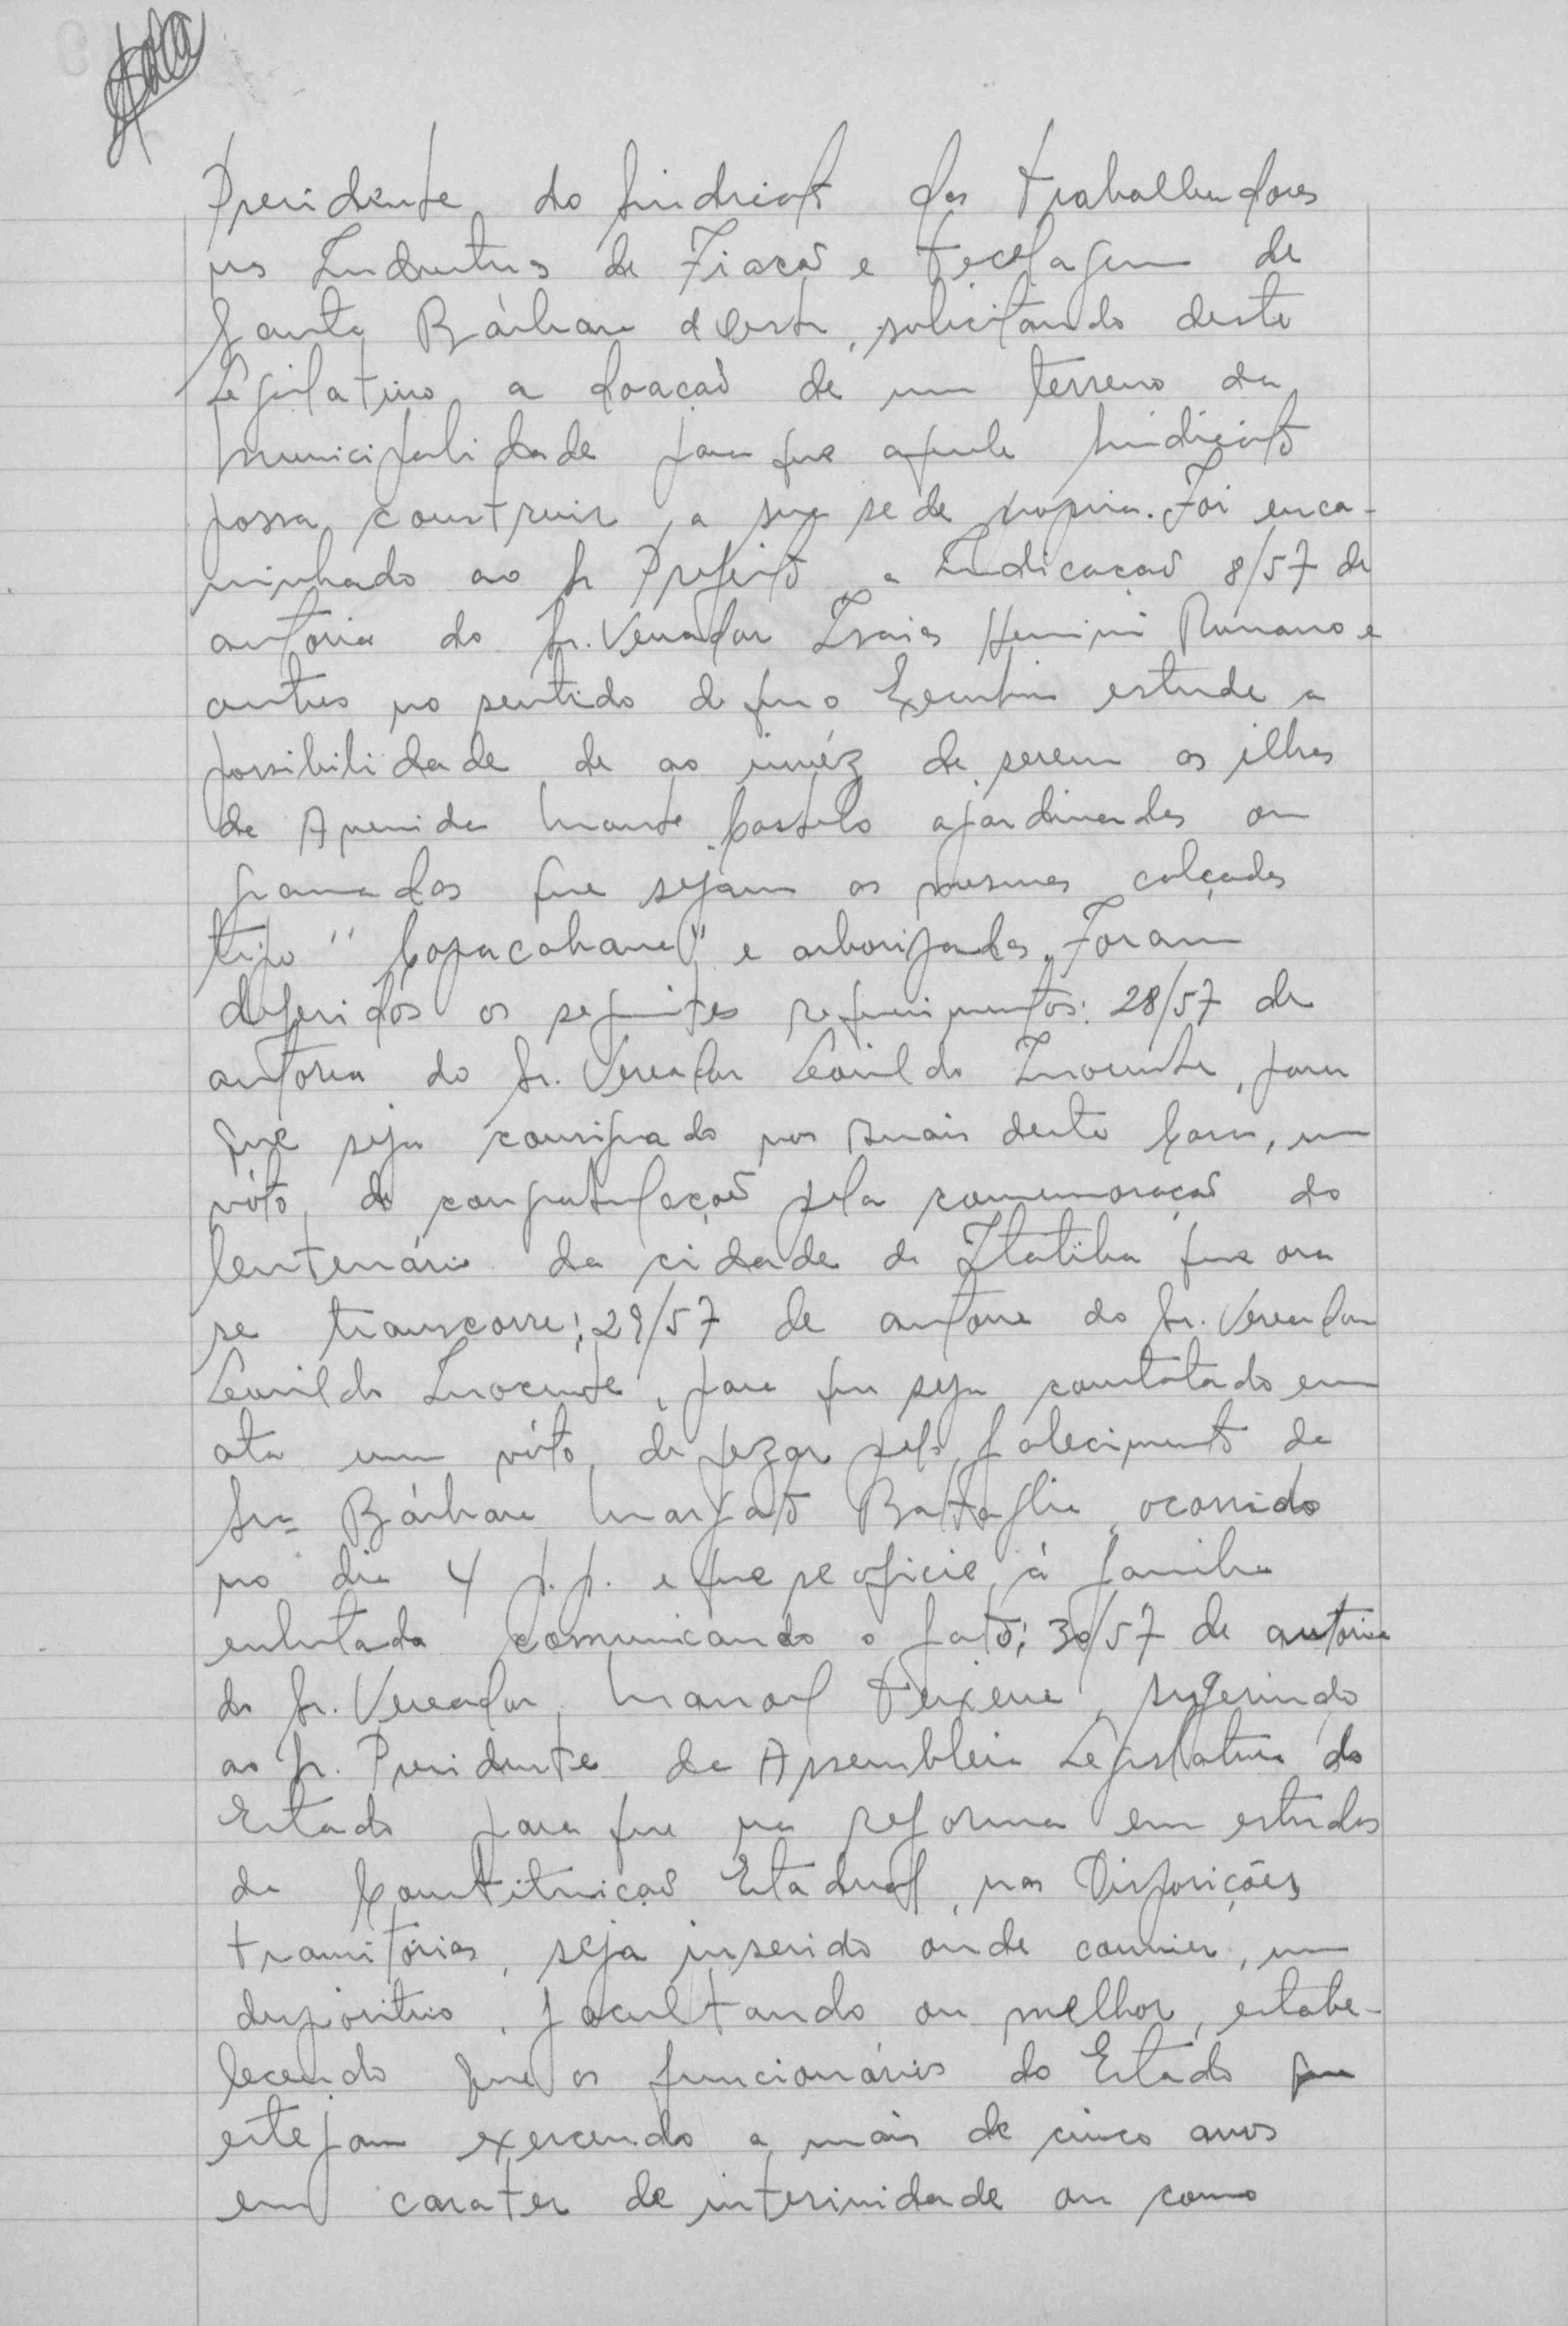 Presidente do Sindicato dos trabalhadores
nas Industrias de Fiação e tecelagem de
Santa Bárbara d'Oeste, solicitando deste
Legislativo a doação de um terreno da
Municipalidade para que aquele Sindicato
possa construir a sua sede propria. Foi enca-
minhado ao Sr Prefeito a Indicação 8/57 de
autoria do Sr. Vereador Isaias Romano e
outros no sentido de que o Executivo estude a
possibilidade de ao invéz de serem as ilhas
da Avenida Monte Castelo ajardinadas ou
gramadas que sejam as mesmas calçadas
tipo "Copacabana" e arborisadas. Foram
deferidos os seguintes requerimentos: 28/57 de
autoria do Sr. Vereador Leonildo Inocente, para
que seja consignado nos Anais desta Casa, um
vóto de congratulações pela comemoração do
Centenário da cidade de Itatiba que ora
se transcorre; 29/57 de autoria do Sr. Vereador
Leonildo Inocente, para que seja constatado em
ata um vóto de pezar pelo falecimento da
Sra Bárbara Margato Bataglia, ocorrido
no dia 4 p.p. e que se oficie à familia
enlutada comunicando o fato; 30/57 de autoria
do Sr. Vereador Manoel Teixeira, sugerindo
ao Sr. Presidente da Assembleia Legislativa do
Estado para que na reforma em estudos
da Constituição Estadual, nas Disposições
transitórias, seja inserido onde convier, um
dispositivo, facultando ou melhor, estabe-
lecendo que os funcionários do Estado que
estejam exercendo a mais de cinco anos
em carater de interinidade ou como